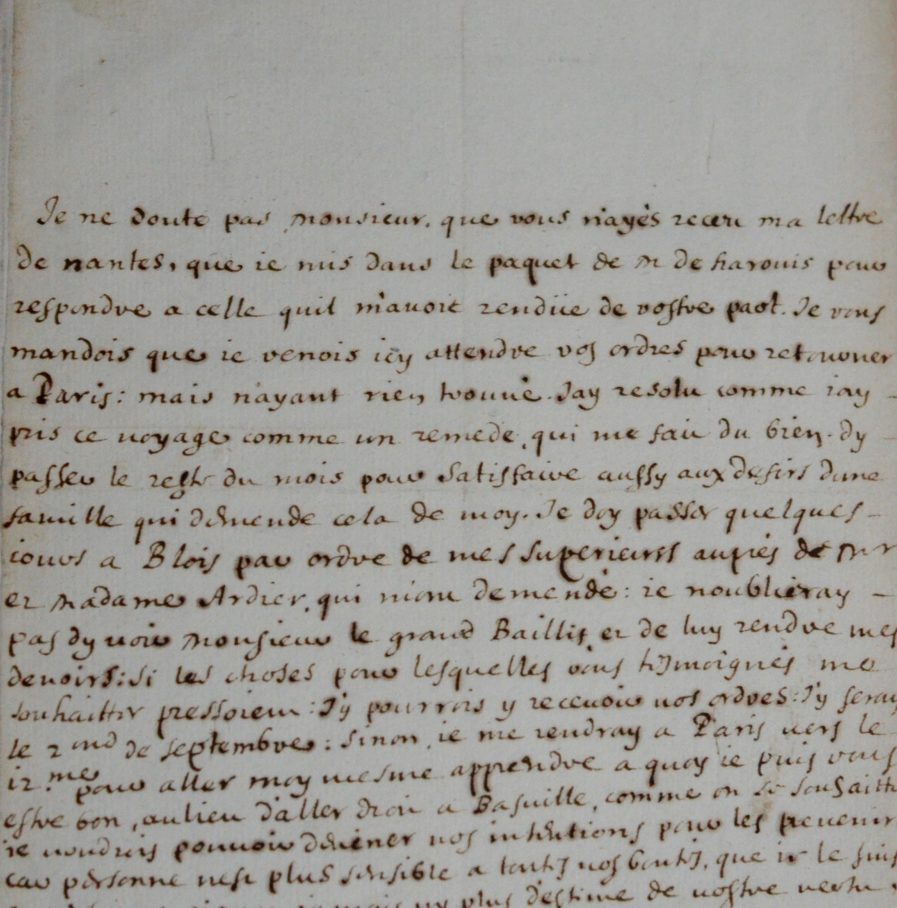 Je ne doute pas monsieur, que vous n'ayés receu ma lettre
de nantes, que ie mis dans le paquet de Mr de harouis pour
respondre a celle quil m'avoit rendüe de vostre part. Je vous
mandois que ie venois icy attendre vos ordres pour retourner
a Paris: mais n'ayant rien trouué. Jay resolu comme iay
pris ce uoyage comme un remede, qui me fait du bien. dy
passer le reste du mois pour satisfaire aussy aux desirs dune
famille qui demende cela de moy. Je doy passer quelques
iours a Blois par ordre de mes superieurs auprés de Mr
et Madame Ardier, qui m'ont demendé: ie noublieray
pas dy uoir Monsieur le grand Baillif, et de luy rendre mes
deuoirs: si les choses pour lesquelles vous tesmoignés me
souhaitter pressoient: J'y pourrois y receuoir uos ordres: J'y seray
le 2ond de septembre: sinon, ie me rendray a Paris uers le
12.me pour aller moy mesme apprendre a quoy ie puis vous
estre bon, aulieu d'aller droit a Basuille, comme on le souhaitte
ie uoudrois pouuoir deuiner uos intentions pour les preuenir
car personne nest plus sensible a toutes uos bontés, que ie le suis
plus d'estime de uostre uertu,